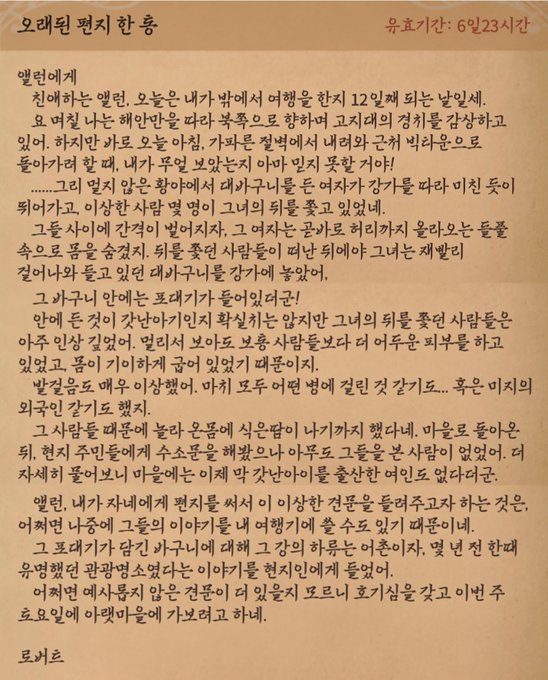 오래된 편지 한 통
유효기간: 6일23시간
앨런에게
친애하는 앨런, 오늘은 내가 밖에서 여행을 한지 12일째 되는 날일세.
요 며칠 나는 해안만을 따라 북쪽으로 향하며 고지대의 경치를 감상하고
있어. 하지만 바로 오늘 아침, 가파른 절벽에서 내려와 근처 빅타운으로
돌아가려 할 때, 내가 무얼 보았는지 아마 믿지 못할 거야!
......그리 멀지 않은 황야에서 대바구니를 든 여자가 강가를 따라 미친 듯이
뛰어가고, 이상한 사람 몇 명이 그녀의 뒤를 쫓고 있었네.
그들 사이에 간격이 벌어지자, 그 여자는 곧바로 허리까지 올라오는 들풀
속으로 몸을 숨겼지. 뒤를 쫓던 사람들이 떠난 뒤에야 그녀는 재빨리
걸어나와 들고 있던 대바구니를 강가에 놓았어,
그 바구니 안에는 포대기가 들어있더군!
안에 든 것이 갓난아기인지 확실치는 않지만 그녀의 뒤를 쫓던 사람들은
아주 인상 깊었어. 멀리서 보아도 보통 사람들보다 더 어두운 피부를 하고
있었고, 몸이 기이하게 굽어 있었기 때문이지.
발걸음도 매우 이상했어. 마치 모두 어떤 병에 걸린 것 같기도... 혹은 미지의
외국인 같기도 했지.
그 사람들 때문에 놀라 온몸에 식은땀이 나기까지 했다네. 마을로 돌아온
뒤, 현지 주민들에게 수소문을 해봤으나 아무도 그들을 본 사람이 없었어. 더
자세히 물어보니 마을에는 이제 막 갓난아이를 출산한 여인도 없다더군.
앨런, 내가 자네에게 편지를 써서 이 이상한 견문을 들려주고자 하는 것은,
어쩌면 나중에 그들의 이야기를 내 여행기에 쓸 수도 있기 때문이네.
그 포대기가 담긴 바구니에 대해 그 강의 하류는 어촌이자, 몇 년 전 한때
유명했던 관광명소였다는 이야기를 현지인에게 들었어.
어쩌면 예사롭지 않은 견문이 더 있을지 모르니 호기심을 갖고 이번 주
토요일에 아랫마을에 가보려고 하네.
로버트